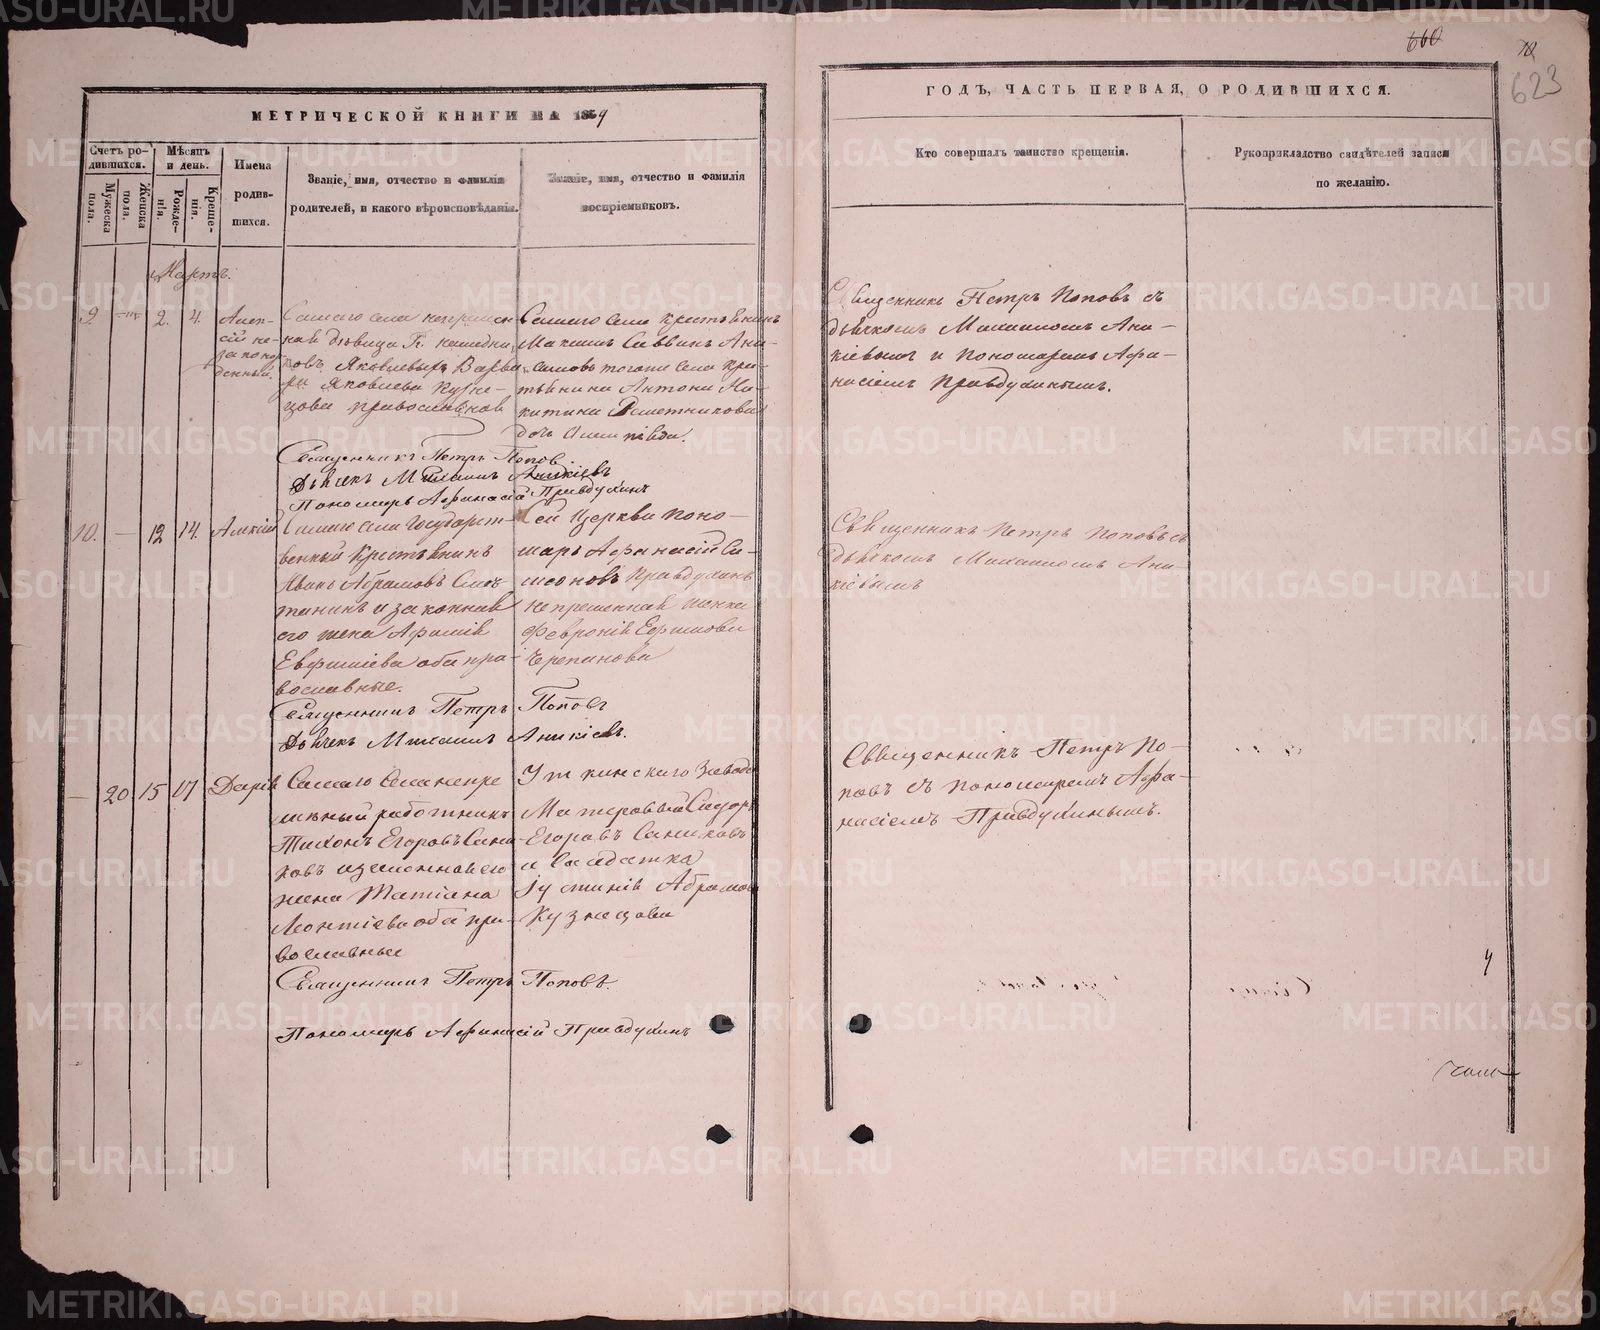 660
623
МЕТРИЧЕСКОЙ КНИГИ НА 1859
ГОДЪ, ЧАСТЬ ПЕРВАЯ, О РОДИВШИХСЯ.
Счетъ родившихся.
Мужеска пола.
Женска пола.
Мѣсяцъ и день.
Рожденія.
Крещенія.
Имена родившихся.
Званіе, имя, отчество и фамилія
родителей, и какого вѣроисповѣданія.
Званіе, имя, отчество и фамилія
воспріемниковъ.
Кто совершалъ таинство крещенія.
Рукоприкладство свидѣтелей записи
по желанію.
Мартъ.
9. 2. 4.
Алек-
сій не-
законо
денный
Самаго села
ная дѣвица
Яковлевыхъ Варва
ра Яковлева Кузне-
цова православной
Самаго села Крестьянинъ
Максимъ Саввинъ Ани-
симовъ тогоже села Кре-
стьянина Антона Ни-
китина Решетникова
дочь
Священникъ Петръ Поповъ
Дьячекъ Михаилъ Аникіевъ
Пономарь Афанасій Правдухинъ
Священникъ Петръ Поповъ съ
дьячкомъ Михаиломъ Ани-
кіевымъ и Пономаремъ Афа-
насіемъ Правдухинымъ.
10. — 12 14. Алексій
Самаго села Государст-
венный Крестьянинъ
Иванъ Абрамовъ
и законная
его жена
Евфиміева оба пра-
вославные.
Сей Церкви Поно-
марь Афанасій Си-
меоновъ Правдухинъ
непременная женка
Февронія Ефимова
Черепанова
Священникъ Петръ Поповъ
Дьячекъ Михаилъ Аникіевъ.
Священникъ Петръ Поповъ съ
дьячкомъ Михаиломъ Ани-
кіевымъ
— 20 15 17 Дарія
Самаго села непре
менный работникъ
Тихонъ Егоровъ Сани-
ковъ и законная его
жена Татіана
Леонтіева оба пра-
вославные
Уткинскаго Завода
Мастеровый Сидоръ
Егоровъ Саниковъ
и Салдатка
Іустинія Абрамова
Кузнецова
Священникъ Петръ Поповъ.
Пономарь Афанасій Правдухинъ
Священникъ Петръ По-
повъ съ пономаремъ Афа-
насіемъ Правдухинымъ.
METRIKI.GASO-URAL.RU